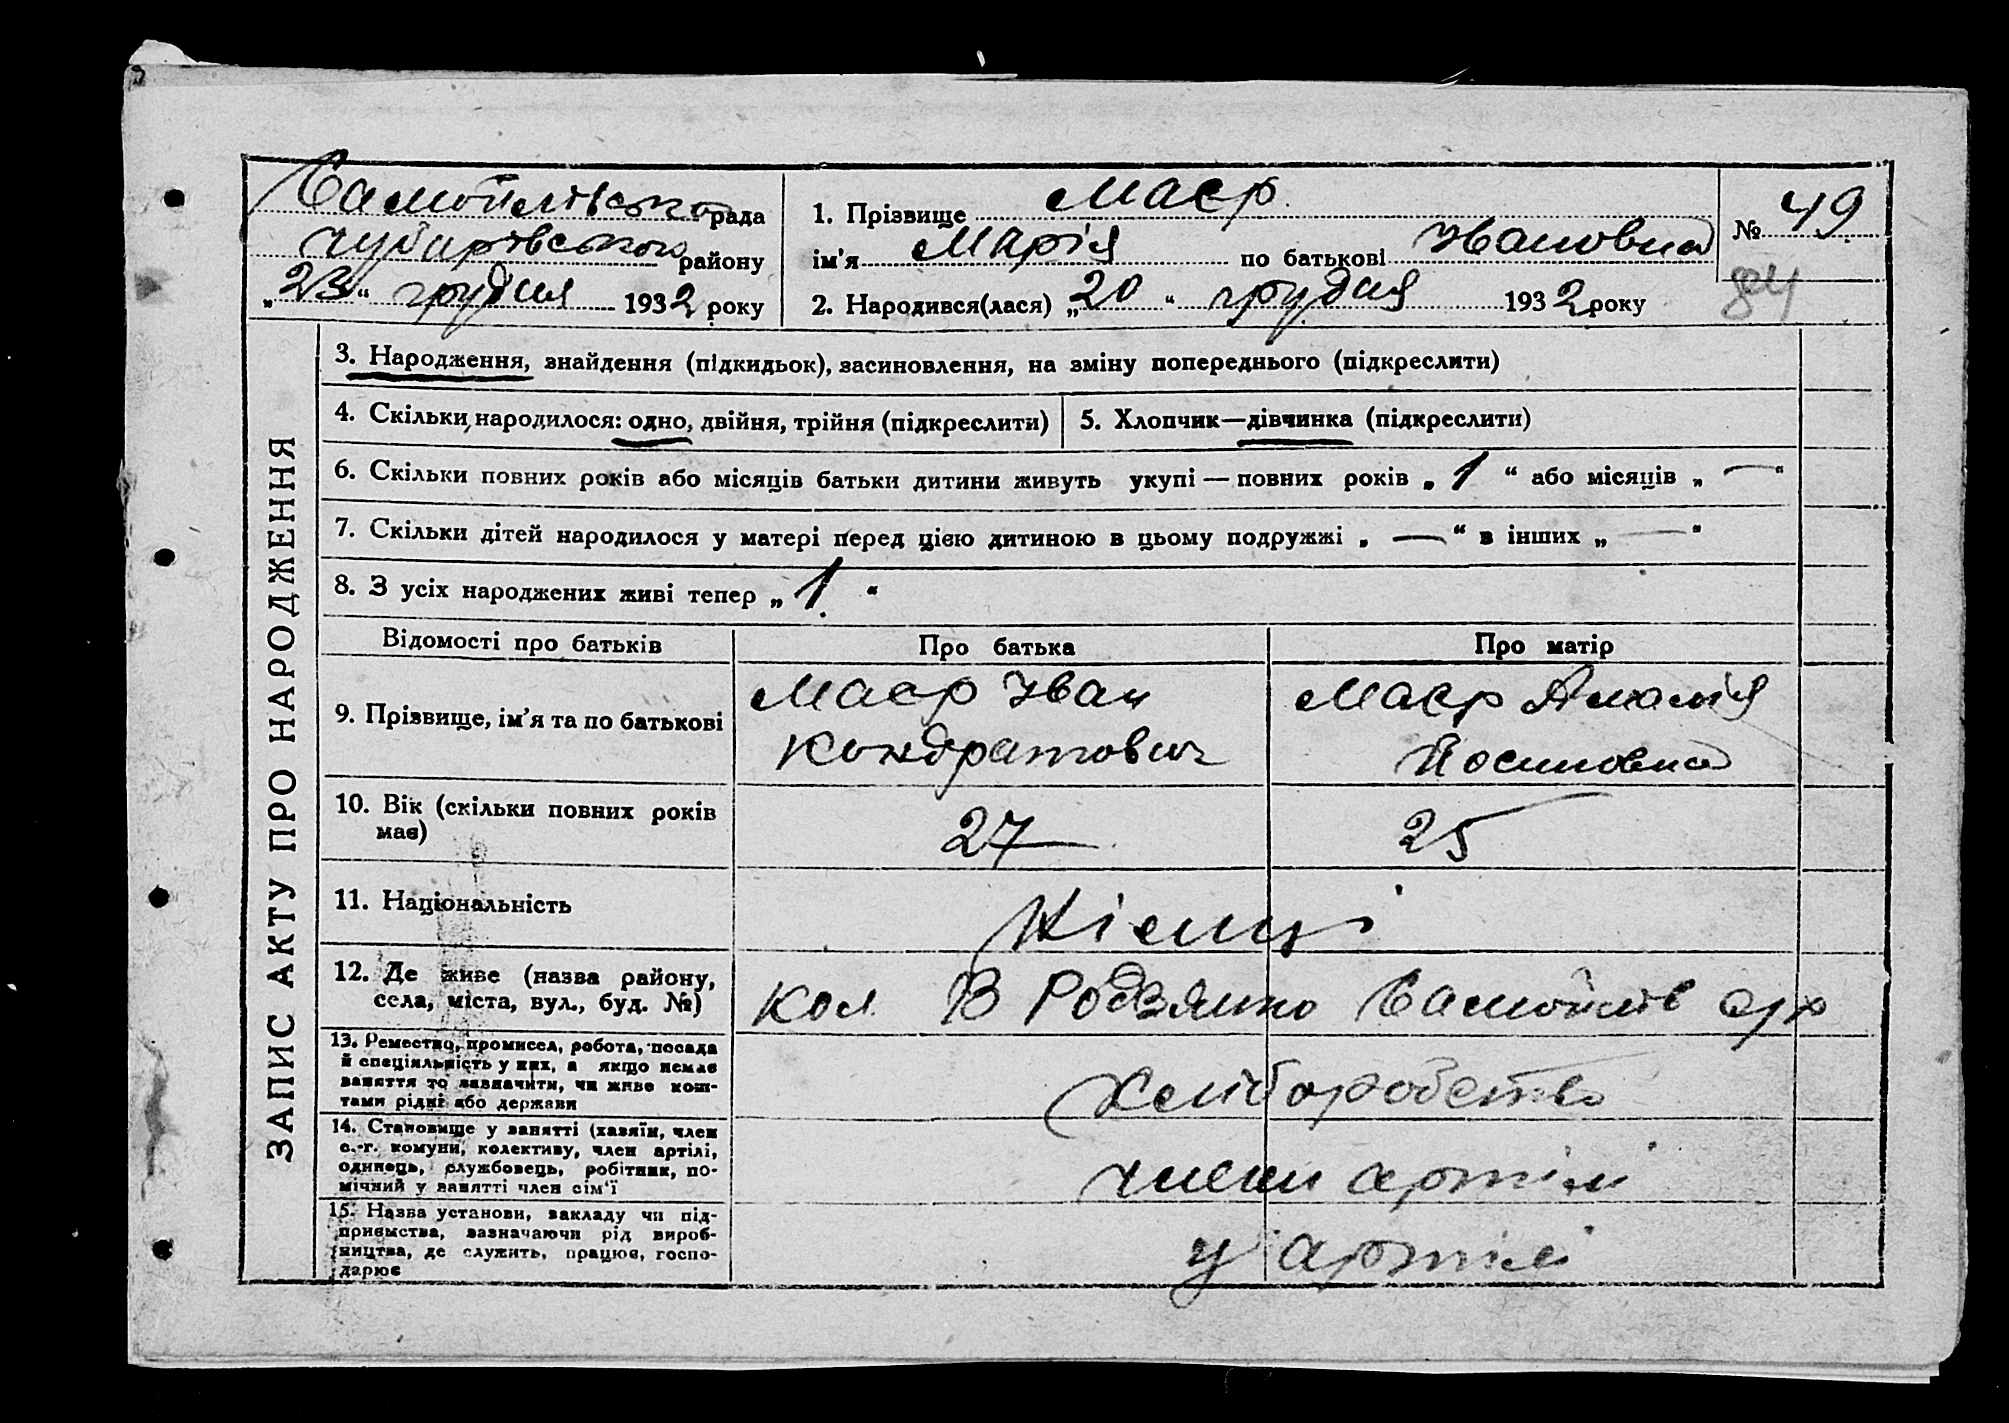 Самойлівська рада
Чубарівського району
„23“ грудня 1932 року
1. Прізвище Маєр
ім'я Марія по батькові Ивановна
2. Народився(лася) „20“ грудня 1932 року
№ 49
84
ЗАПИС АКТУ ПРО НАРОДЖЕННЯ
3. Народження, знайдення (підкидьок), засиновлення, на зміну попереднього (підкреслити)
4. Скільки народилося: одно, двійня, трійня (підкреслити)
5. Хлопчик—дівчинка (підкреслити)
6. Скільки повних років або місяців батьки дитини живуть укупі — повних років „ 1 “ або місяців „ — “
7. Скільки дітей народилося у матері перед цією дитиною в цьому подружжі „ — “ в інших „ — “
8. З усіх народжених живі тепер „ 1 “
Відомості про батьків
Про батька
Про матір
9. Прізвище, ім'я та по батькові
Маєр Иван
Кондратович
Маєр Амалія
Йосиповна
10. Вік (скільки повних років
має)
27
25
11. Національність
Німці
12. Де живе (назва району,
села, міста, вул., буд. №)
кол. В Родзянко Самойлів с/р
13. Ремество, промисел, робота, посада
й спеціяльність у них, а якщо немає
заняття то зазначити, чи живе кош-
тами рідні або держави
Хліборобство
14. Становище у занятті (хазяїн, член
с.-г. комуни, колективу, член артілі,
одинець, службовець, робітник, по-
мічний у занятті член сім'ї
члени артілі
15. Назва установи, закладу чи під-
приємства, зазначаючи рід вироб-
ництва, де служить, працює, госпо-
дарює
у артілі